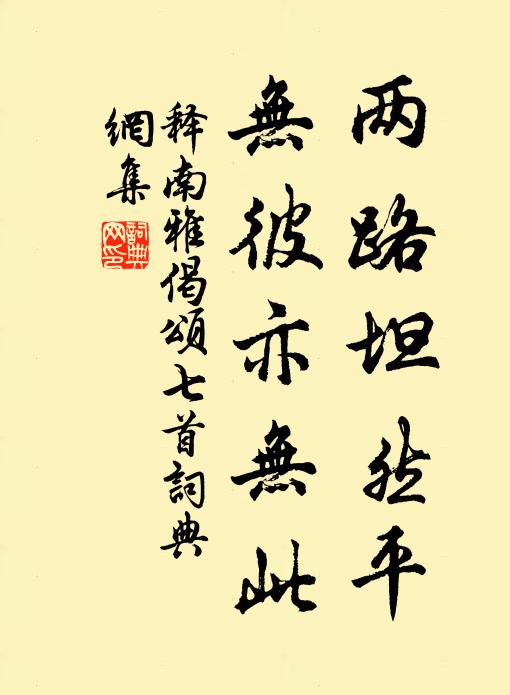 两路坦然平
無彼亦無此
释南雅偈頌七首詞典
網集
詞典网印